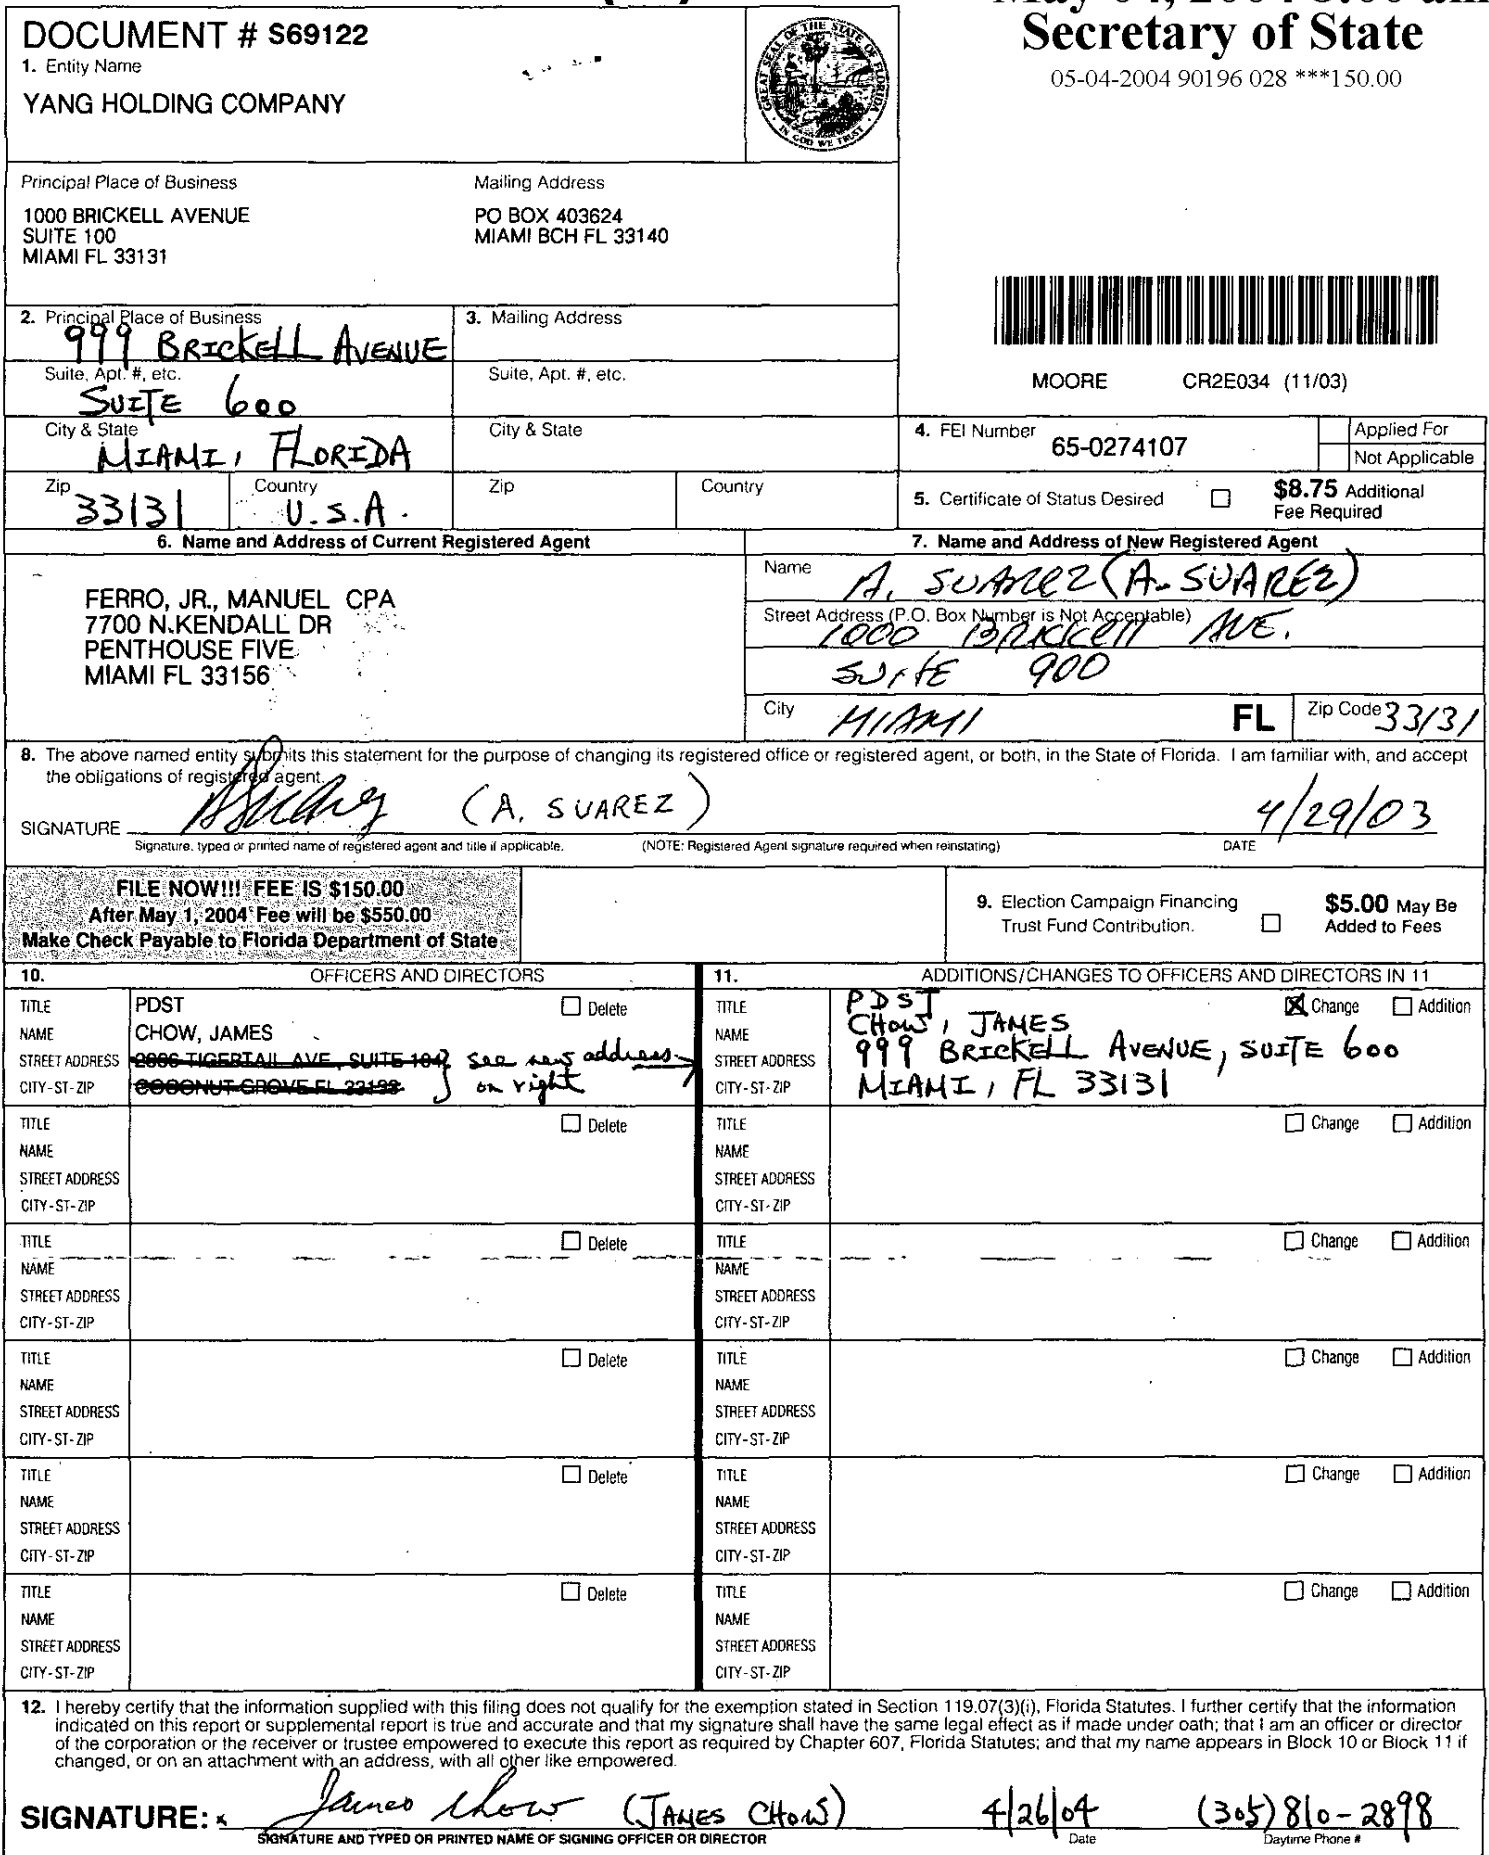 Secretary of State
05-04-2004 90196 028 ***150.00
DOCUMENT # S69122
1. Entity Name
YANG HOLDING COMPANY
GREAT SEAL OF THE STATE OF FLORIDA
IN GOD WE TRUST
Principal Place of Business
Mailing Address
1000 BRICKELL AVENUE
SUITE 100
MIAMI FL 33131
PO BOX 403624
MIAMI BCH FL 33140
MOORE CR2E034 (11/03)
2. Principal Place of Business
999 BRICKELL AVENUE
3. Mailing Address
Suite, Apt. #, etc.
SUITE 600
Suite, Apt. #, etc.
City & State
MIAMI, FLORIDA
City & State
Zip
33131
Country
U.S.A.
Zip
Country
4. FEI Number
65-0274107
Applied For
Not Applicable
5. Certificate of Status Desired
$8.75 Additional
Fee Required
6. Name and Address of Current Registered Agent
FERRO, JR., MANUEL CPA
7700 N.KENDALL DR
PENTHOUSE FIVE
MIAMI FL 33156
7. Name and Address of New Registered Agent
Name
A. SUAREZ (A. SUAREZ)
Street Address (P.O. Box Number is Not Acceptable)
1000 BRICKELL AVE.
SUITE 900
City
MIAMI
FL
Zip Code 33131
8. The above named entity submits this statement for the purpose of changing its registered office or registered agent, or both, in the State of Florida. I am familiar with, and accept
the obligations of registered agent.
SIGNATURE
(A. SUAREZ)
4/29/03
Signature, typed or printed name of registered agent and title if applicable.
(NOTE: Registered Agent signature required when reinstating)
DATE
FILE NOW!!! FEE IS $150.00
After May 1, 2004 Fee will be $550.00
Make Check Payable to Florida Department of State
9. Election Campaign Financing
Trust Fund Contribution.
$5.00 May Be
Added to Fees
10. OFFICERS AND DIRECTORS
11. ADDITIONS/CHANGES TO OFFICERS AND DIRECTORS IN 11
TITLE PDST Delete
NAME CHOW, JAMES
STREET ADDRESS 2886 TIGERTAIL AVE, SUITE 104 see new address
CITY-ST-ZIP COCONUT GROVE FL 33133 on right
TITLE PDST Change Addition
NAME CHOW, JAMES
STREET ADDRESS 999 BRICKELL AVENUE, SUITE 600
CITY-ST-ZIP MIAMI, FL 33131
TITLE Delete
NAME
STREET ADDRESS
CITY-ST-ZIP
TITLE Change Addition
NAME
STREET ADDRESS
CITY-ST-ZIP
TITLE Delete
NAME
STREET ADDRESS
CITY-ST-ZIP
TITLE Change Addition
NAME
STREET ADDRESS
CITY-ST-ZIP
TITLE Delete
NAME
STREET ADDRESS
CITY-ST-ZIP
TITLE Change Addition
NAME
STREET ADDRESS
CITY-ST-ZIP
TITLE Delete
NAME
STREET ADDRESS
CITY-ST-ZIP
TITLE Change Addition
NAME
STREET ADDRESS
CITY-ST-ZIP
TITLE Delete
NAME
STREET ADDRESS
CITY-ST-ZIP
TITLE Change Addition
NAME
STREET ADDRESS
CITY-ST-ZIP
12. I hereby certify that the information supplied with this filing does not qualify for the exemption stated in Section 119.07(3)(i), Florida Statutes. I further certify that the information
indicated on this report or supplemental report is true and accurate and that my signature shall have the same legal effect as if made under oath; that I am an officer or director
of the corporation or the receiver or trustee empowered to execute this report as required by Chapter 607, Florida Statutes; and that my name appears in Block 10 or Block 11 if
changed, or on an attachment with an address, with all other like empowered.
SIGNATURE: x James Chow (JAMES CHOW) 4/26/04 (305) 810-2898
SIGNATURE AND TYPED OR PRINTED NAME OF SIGNING OFFICER OR DIRECTOR
Date
Daytime Phone #